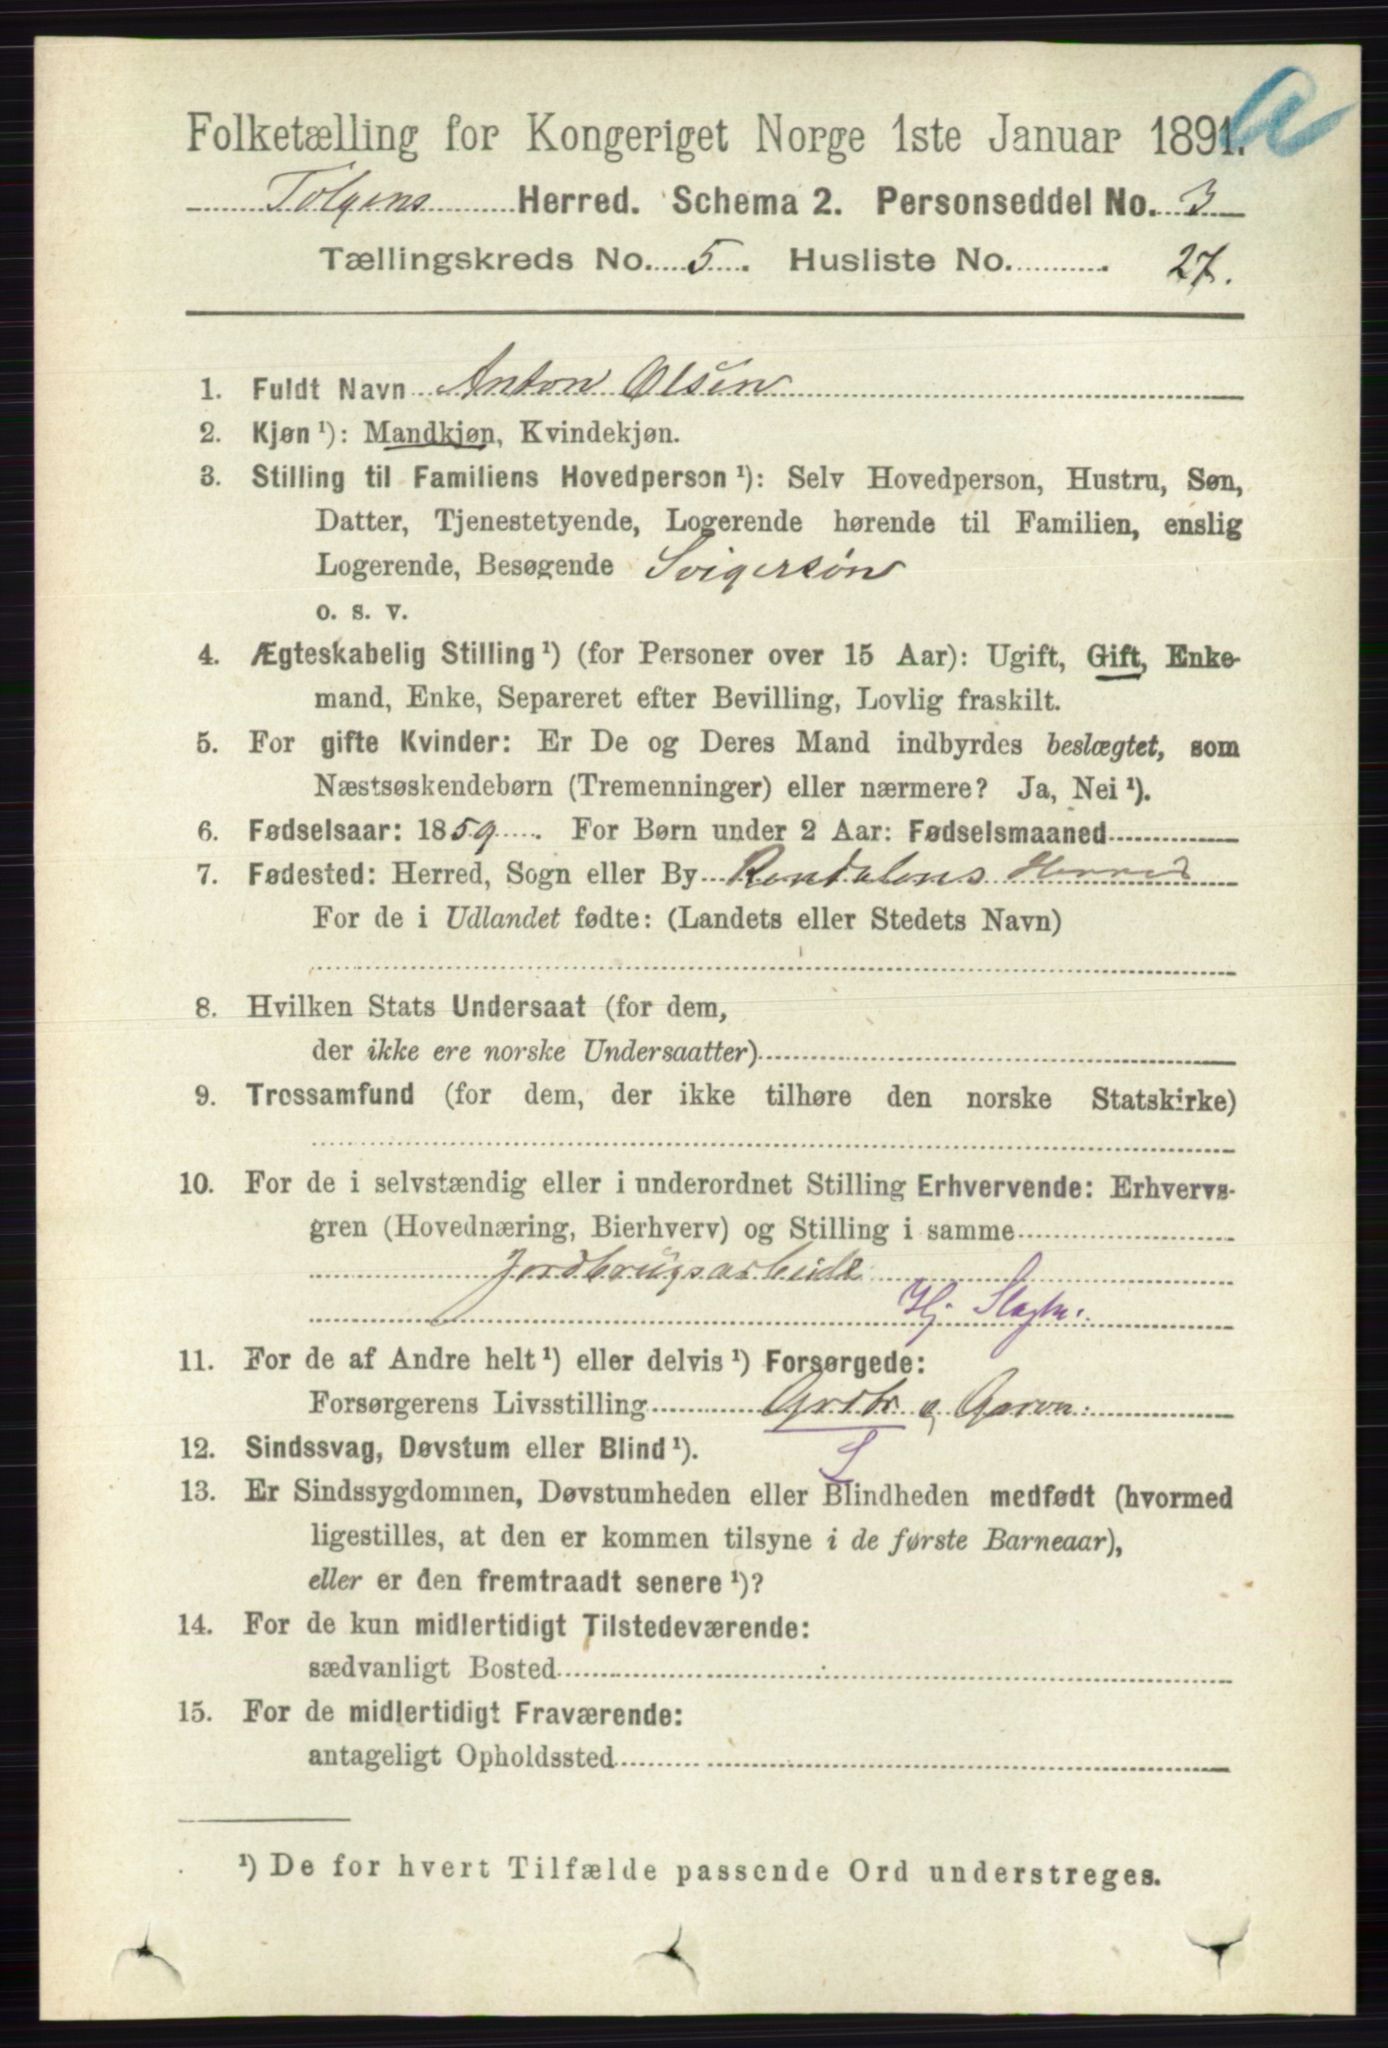 a
Folketælling for Kongeriget Norge 1ste Januar 1891.
Tolgens Herred. Schema 2. Personseddel No. 3
Tællingskreds No. 5. Husliste No. 27.
1. Fuldt Navn Anton Olsen
2. Kjøn ¹): Mandkjøn, Kvindekjøn.
3. Stilling til Familiens Hovedperson ¹): Selv Hovedperson, Hustru, Søn,
Datter, Tjenestetyende, Logerende hørende til Familien, enslig
Logerende, Besøgende Svigersøn
o. s. v.
4. Ægteskabelig Stilling ¹) (for Personer over 15 Aar): Ugift, Gift, Enke-
mand, Enke, Separeret efter Bevilling, Lovlig fraskilt.
5. For gifte Kvinder: Er De og Deres Mand indbyrdes beslægtet, som
Næstsøskendebørn (Tremenninger) eller nærmere? Ja, Nei ¹).
6. Fødselsaar: 1859. For Børn under 2 Aar: Fødselsmaaned
7. Fødested: Herred, Sogn eller By Rendalens Herred
For de i Udlandet fødte: (Landets eller Stedets Navn)
8. Hvilken Stats Undersaat (for dem,
der ikke ere norske Undersaatter)
9. Trossamfund (for dem, der ikke tilhøre den norske Statskirke)
10. For de i selvstændig eller i underordnet Stilling Erhvervende: Erhvervs-
gren (Hovednæring, Bierhverv) og Stilling i samme
Jordbrugsarbeide
Hj. Slagtn.
11. For de af Andre helt ¹) eller delvis ¹) Forsørgede:
Forsørgerens Livsstilling Grdbr.
S
12. Sindssvag, Døvstum eller Blind ¹).
13. Er Sindssygdommen, Døvstumheden eller Blindheden medfødt (hvormed
ligestilles, at den er kommen tilsyne i de første Barneaar),
eller er den fremtraadt senere ¹)?
14. For de kun midlertidigt Tilstedeværende:
sædvanligt Bosted
15. For de midlertidigt Fraværende:
antageligt Opholdssted
¹) De for hvert Tilfælde passende Ord understreges.